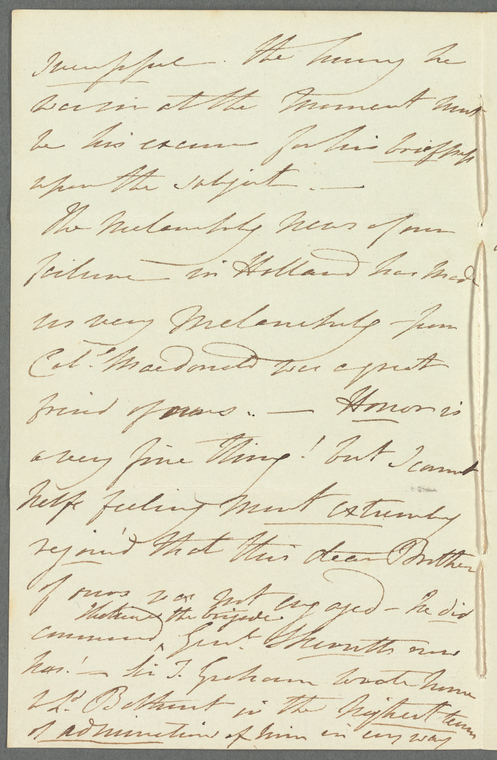 The hurry he
was in at the moment must
be his excuse for his briefness
upon the subject. —
The melancholy news of our
failure in Holland has made
us very melancholy – poor
Col.l Macdonald was a great
friend of ours. — Honor is
a very fine thing! but I cannot
help feeling most extremely
rejoic'd that this dear Brother
of ours was not engaged – he did
command the brigade Gen.l now
has! — Sir T. Graham wrote home
to L.d Bathurst in the highest terms
of admiration of him in every way